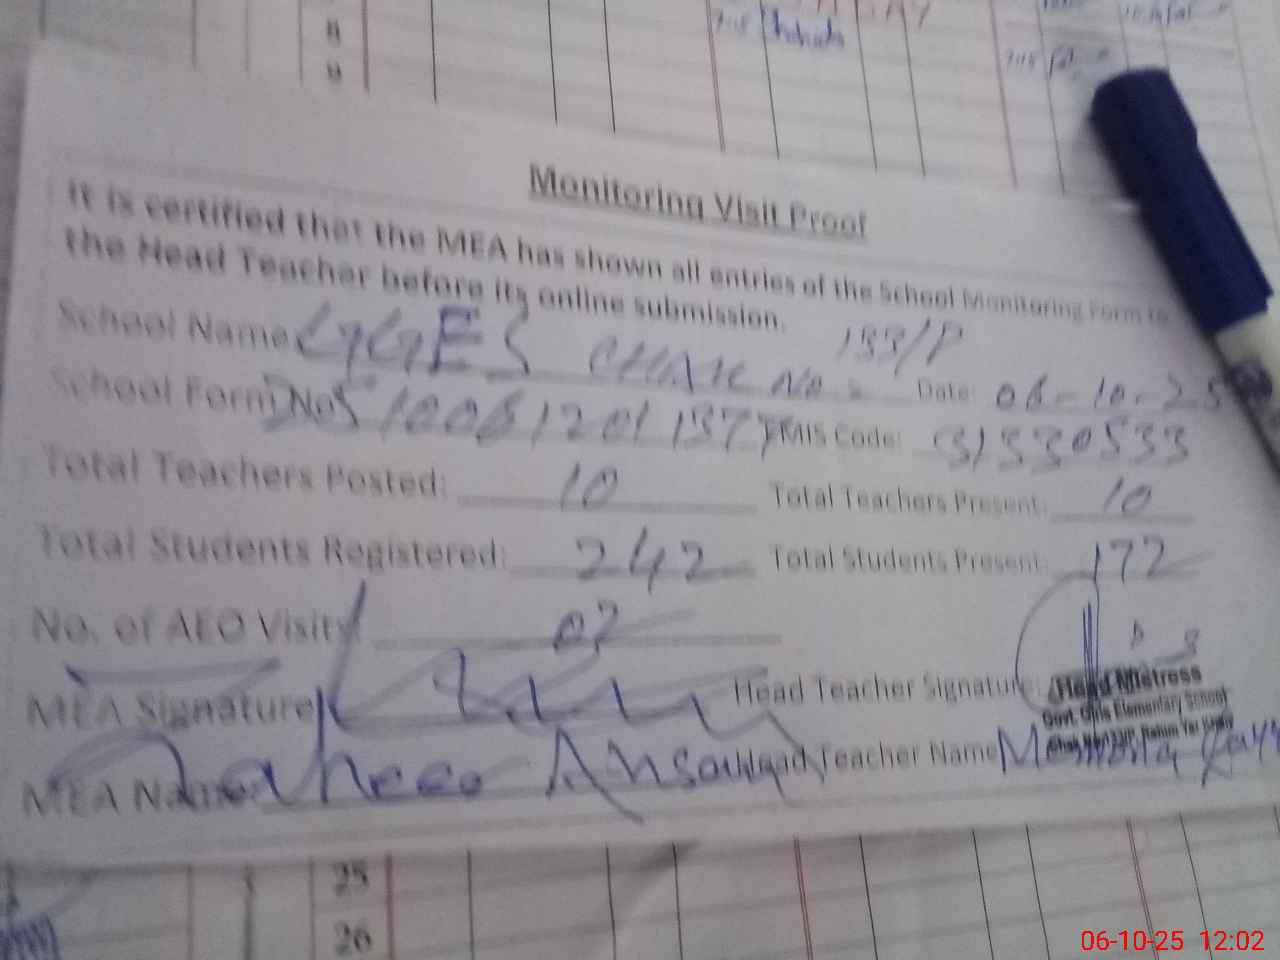 8
9
Monitoring Visit Proof
It is certified that the MEA has shown all entries of the School Monitoring Form to
the Head Teacher before its online submission.
School Name GGES CHAK No 133/P Date: 06-10-25
School Form No EMIS Code: 31330533
Total Teachers Posted: 10 Total Teachers Present: 10
Total Students Registered: 242 Total Students Present: 172
No. of AEO Visit
MEA Signature Head Teacher Signature
Head Mistress
Govt. Girls Elementary School
Chak No.133/P, Rahim Yar Khan
MEA Name Ansari Head Teacher Name
25
26
06-10-25 12:02